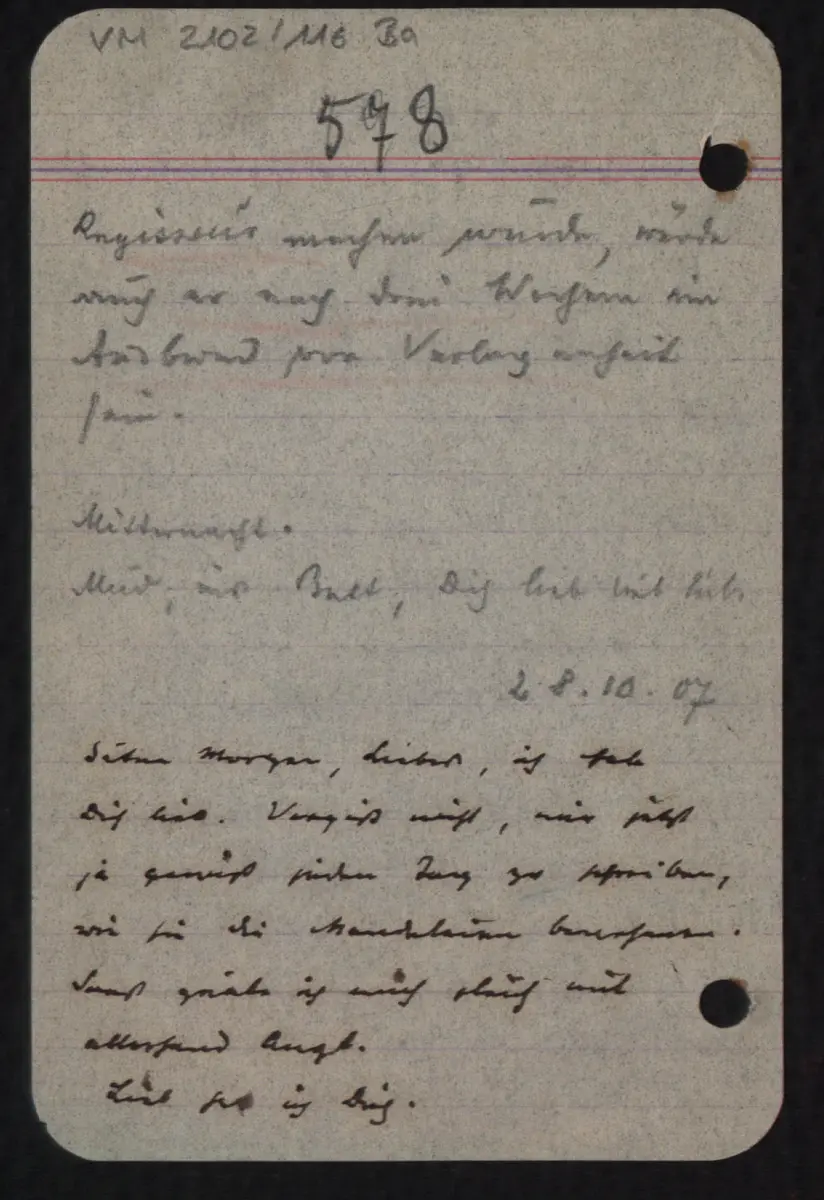 VM 2102/116 Ba
578
Regisseur machen würde, würde
auch er nach drei Wochen ein
Ausbund von Verlogenheit
sein.
Mitternacht.
Müd, ins Bett, Dich lieb lieb lieb.
28.10.07
Guten Morgen, Liebes, ich hab
Dich lieb. Vergiß nicht, mir jetzt
ja gewiß jeden Tag zu schreiben,
wie sie die
Sonst gräule ich mich gleich mit
allerhand Angst.
Lieb hab ich Dich.